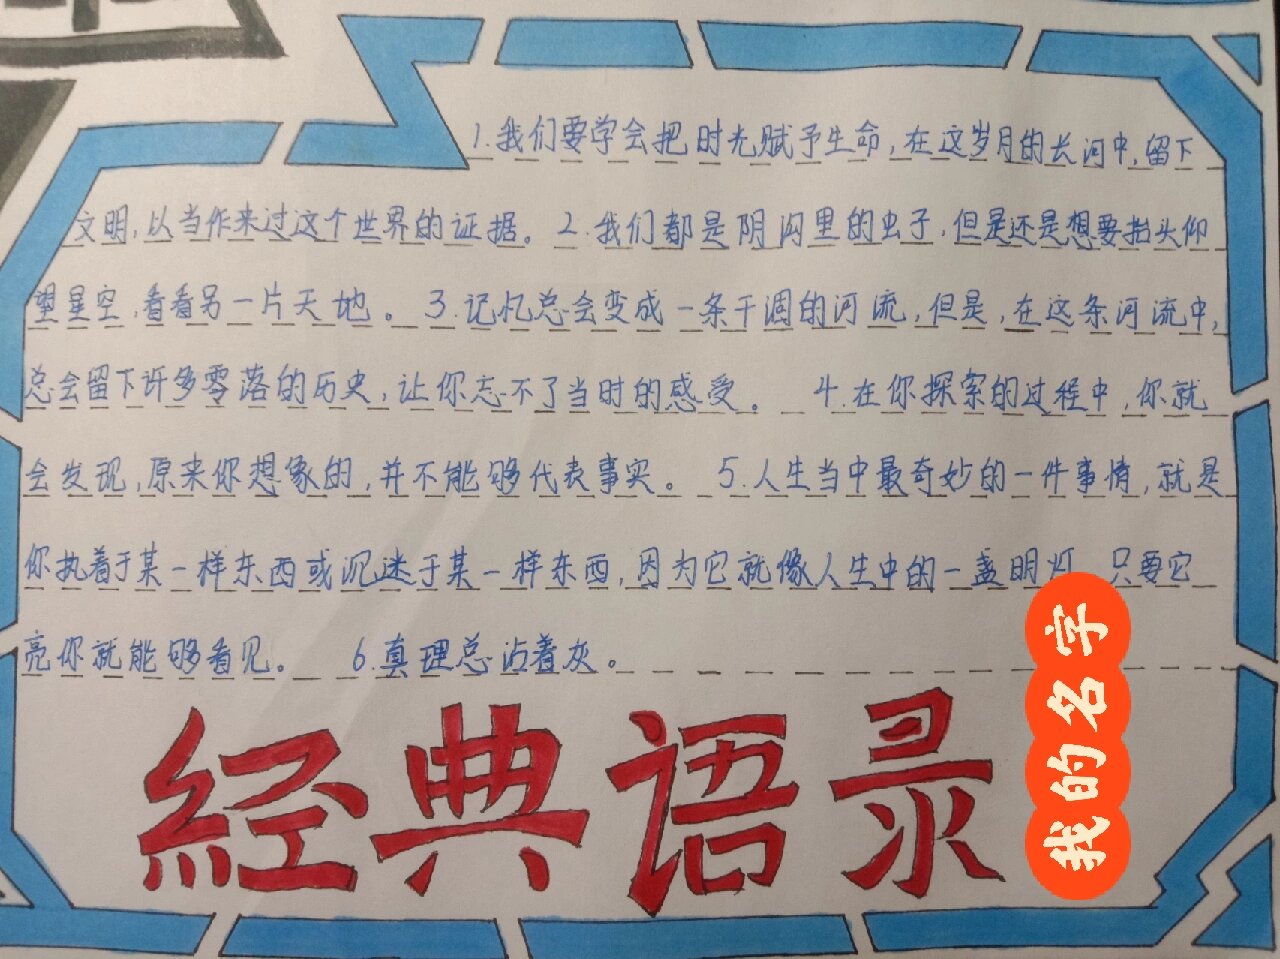 1.我们要学会把时光赋予生命,在这岁月的长河中,留下
文明,以当作来过这个世界的证据。2.我们都是阴沟里的虫子,但是还是想要抬头仰
望星空,看看另一片天地。3.记忆总会变成一条干涸的河流,但是,在这条河流中,
总会留下许多零落的历史,让你忘不了当时的感受。 4.在你探索的过程中,你就
会发现,原来你想象的,并不能够代表事实。 5.人生当中最奇妙的一件事情,就是
你执着于某一样东西或沉迷于某一样东西,因为它就像人生中的一盏明灯 只要它
亮你就能够看见。 6.真理总沾着灰。
經典语录
我的名字